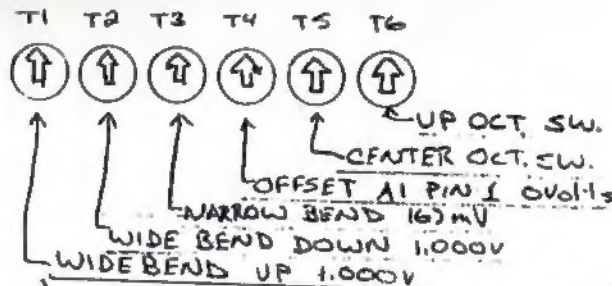 T1 T2 T3 T4 T5 T6
UP OCT. SW.
CENTER OCT. SW.
OFFSET A1 PIN 1 0Volts
NARROW BEND 167mV
WIDE BEND DOWN 1.000V
WIDE BEND UP 1.000V